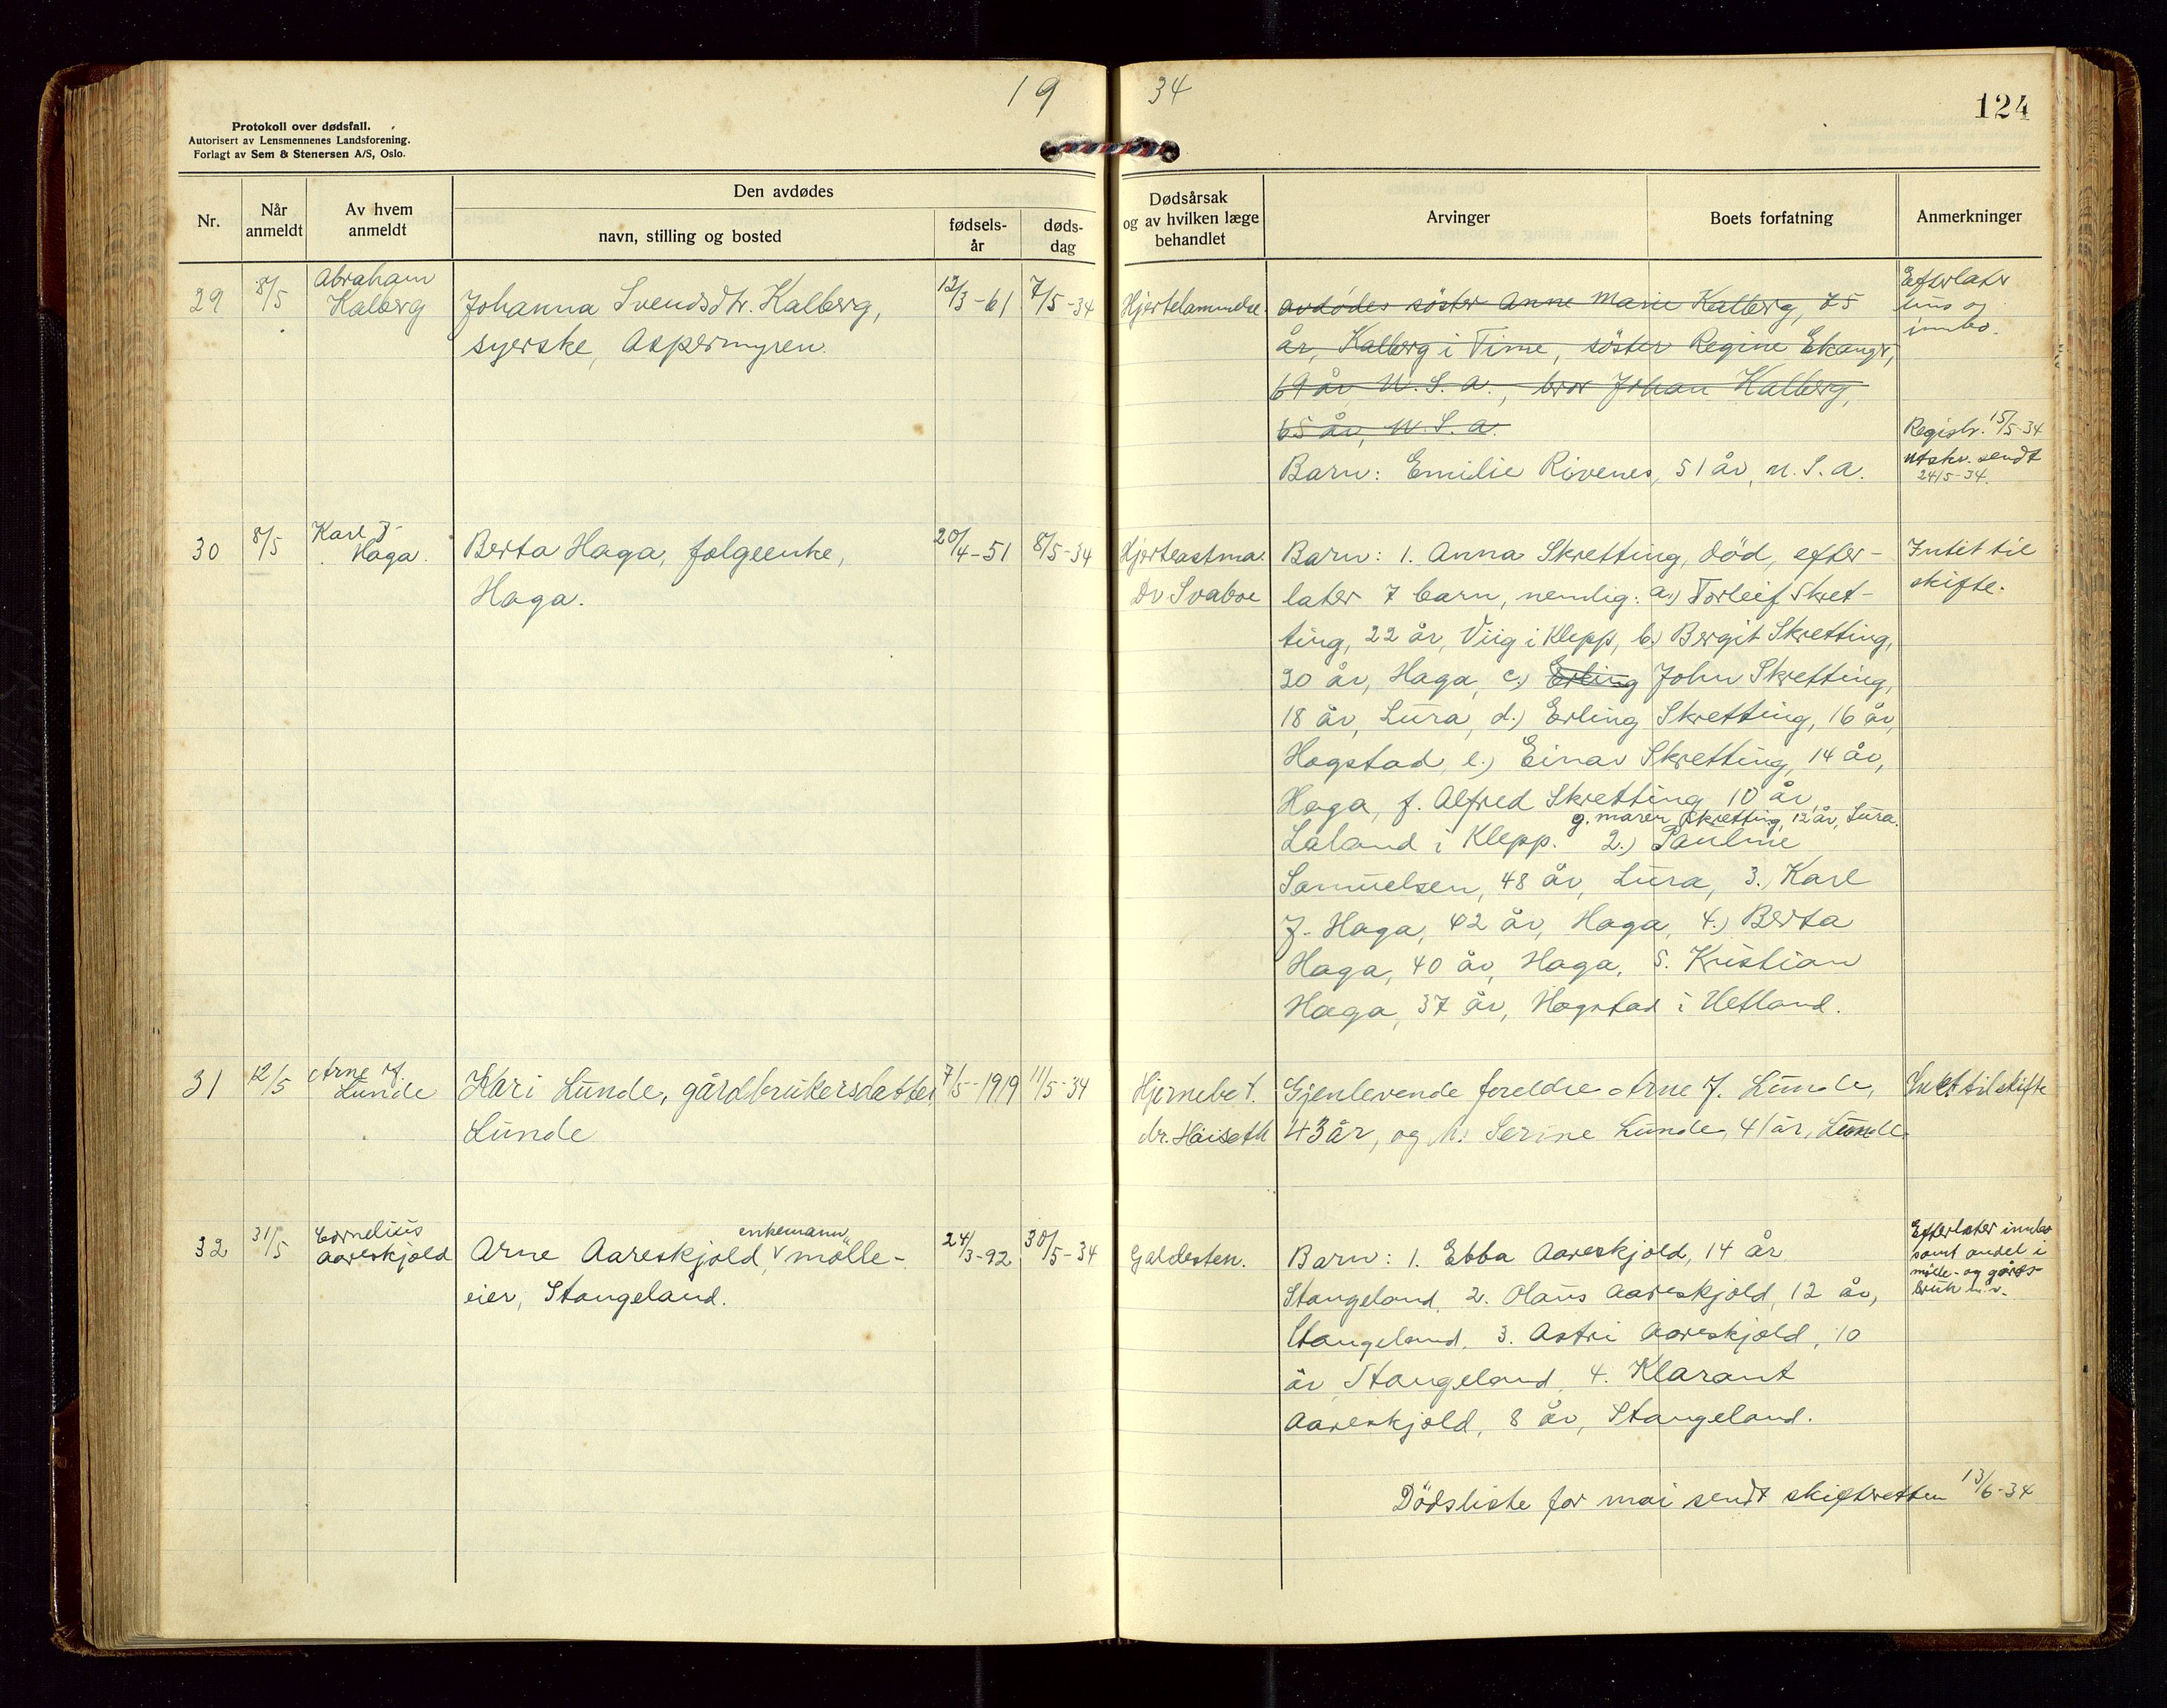 19 34
124
Protokoll over dødsfall.
Autorisert av Lensmennenes Landsforening.
Forlagt av Sem & Stenersen A/S, Oslo.
Nr.
Når anmeldt
Av hvem anmeldt
Den avdødes
navn, stilling og bosted
fødsels-
år
døds-
dag
Dødsårsak
og av hvilken læge
behandlet
Arvinger
Boets forfatning
Anmerkninger
29 8/5 Abraham
Kalberg
Johanna Svendsdtr. Kalberg,
syerske, Aspermyren.
12/3-61 7/5-34
Hjertelammelse.
avdødes søster Anne Marie Kalberg, 75
år, Kalberg i Time, søster Regine
69 år U.S.A., bror Johan Kalberg,
65 år, U.S.A.
Barn: Emilie Rivenes, 51 år, U.S.A.
Efterlater
hus og
innbo.
Registr. 15/5-34
utskr. sendt
24/5-34.
30 8/5 Karl J.
Haga.
Berta Haga, følgeenke,
Haga.
20/4-51 8/5-34
Hjerteastma.
Dr Svaboe
Barn: 1. Anna Skretting, død, efter-
later 7 barn, nemlig: a.) Torleif Skret-
ting, 22 år, Viig i Klepp, b.) Bergit Skretting,
20 år, Haga, c.) Erling John Skretting,
18 år, Lura, d.) Erling Skretting, 16 år,
Hogstad, e.) Einar Skretting, 14 år,
Haga, f. Alfred Skretting 10 år,
g. Maren Skretting, 12 år, Lura.
Laland i Klepp. 2.) Pauline
Samuelsen, 48 år, Lura, 3.) Karl
J. Haga, 42 år, Haga, 4.) Berta
Haga, 40 år, Haga, 5. Kristian
Haga, 37 år, Hogstad i Hetland.
Intet til
skifte.
31 12/5 Arne J.
Lunde
Kari Lunde, gårdbrukersdatter,
Lunde
7/5-1919 11/5-34
Hjernebet.
dr. Høiseth
Gjenlevende foreldre Arne J. Lunde,
43 år, og M. Serine Lunde, 41 år, Lunde
Intet til skifte
32 31/5 Cornelius
Aareskjold
enkemann,
Arne Aareskjold, v mølle-
eier, Stangeland.
24/3-92 30/5-34
Galdesten.
Barn: 1. Ebba Aareskjold, 14 år
Stangeland, 2. Olaus Aareskjold, 12 år,
Stangeland, 3. Astri Aareskjold, 10
år Stangeland, 4. Klarant
Aareskjold, 8 år, Stangeland.
Efterlater innbo
samt andel i
mølle- og gårds-
bruk m.v.
Dödsliste for mai sendt skifteretten 13/6-34